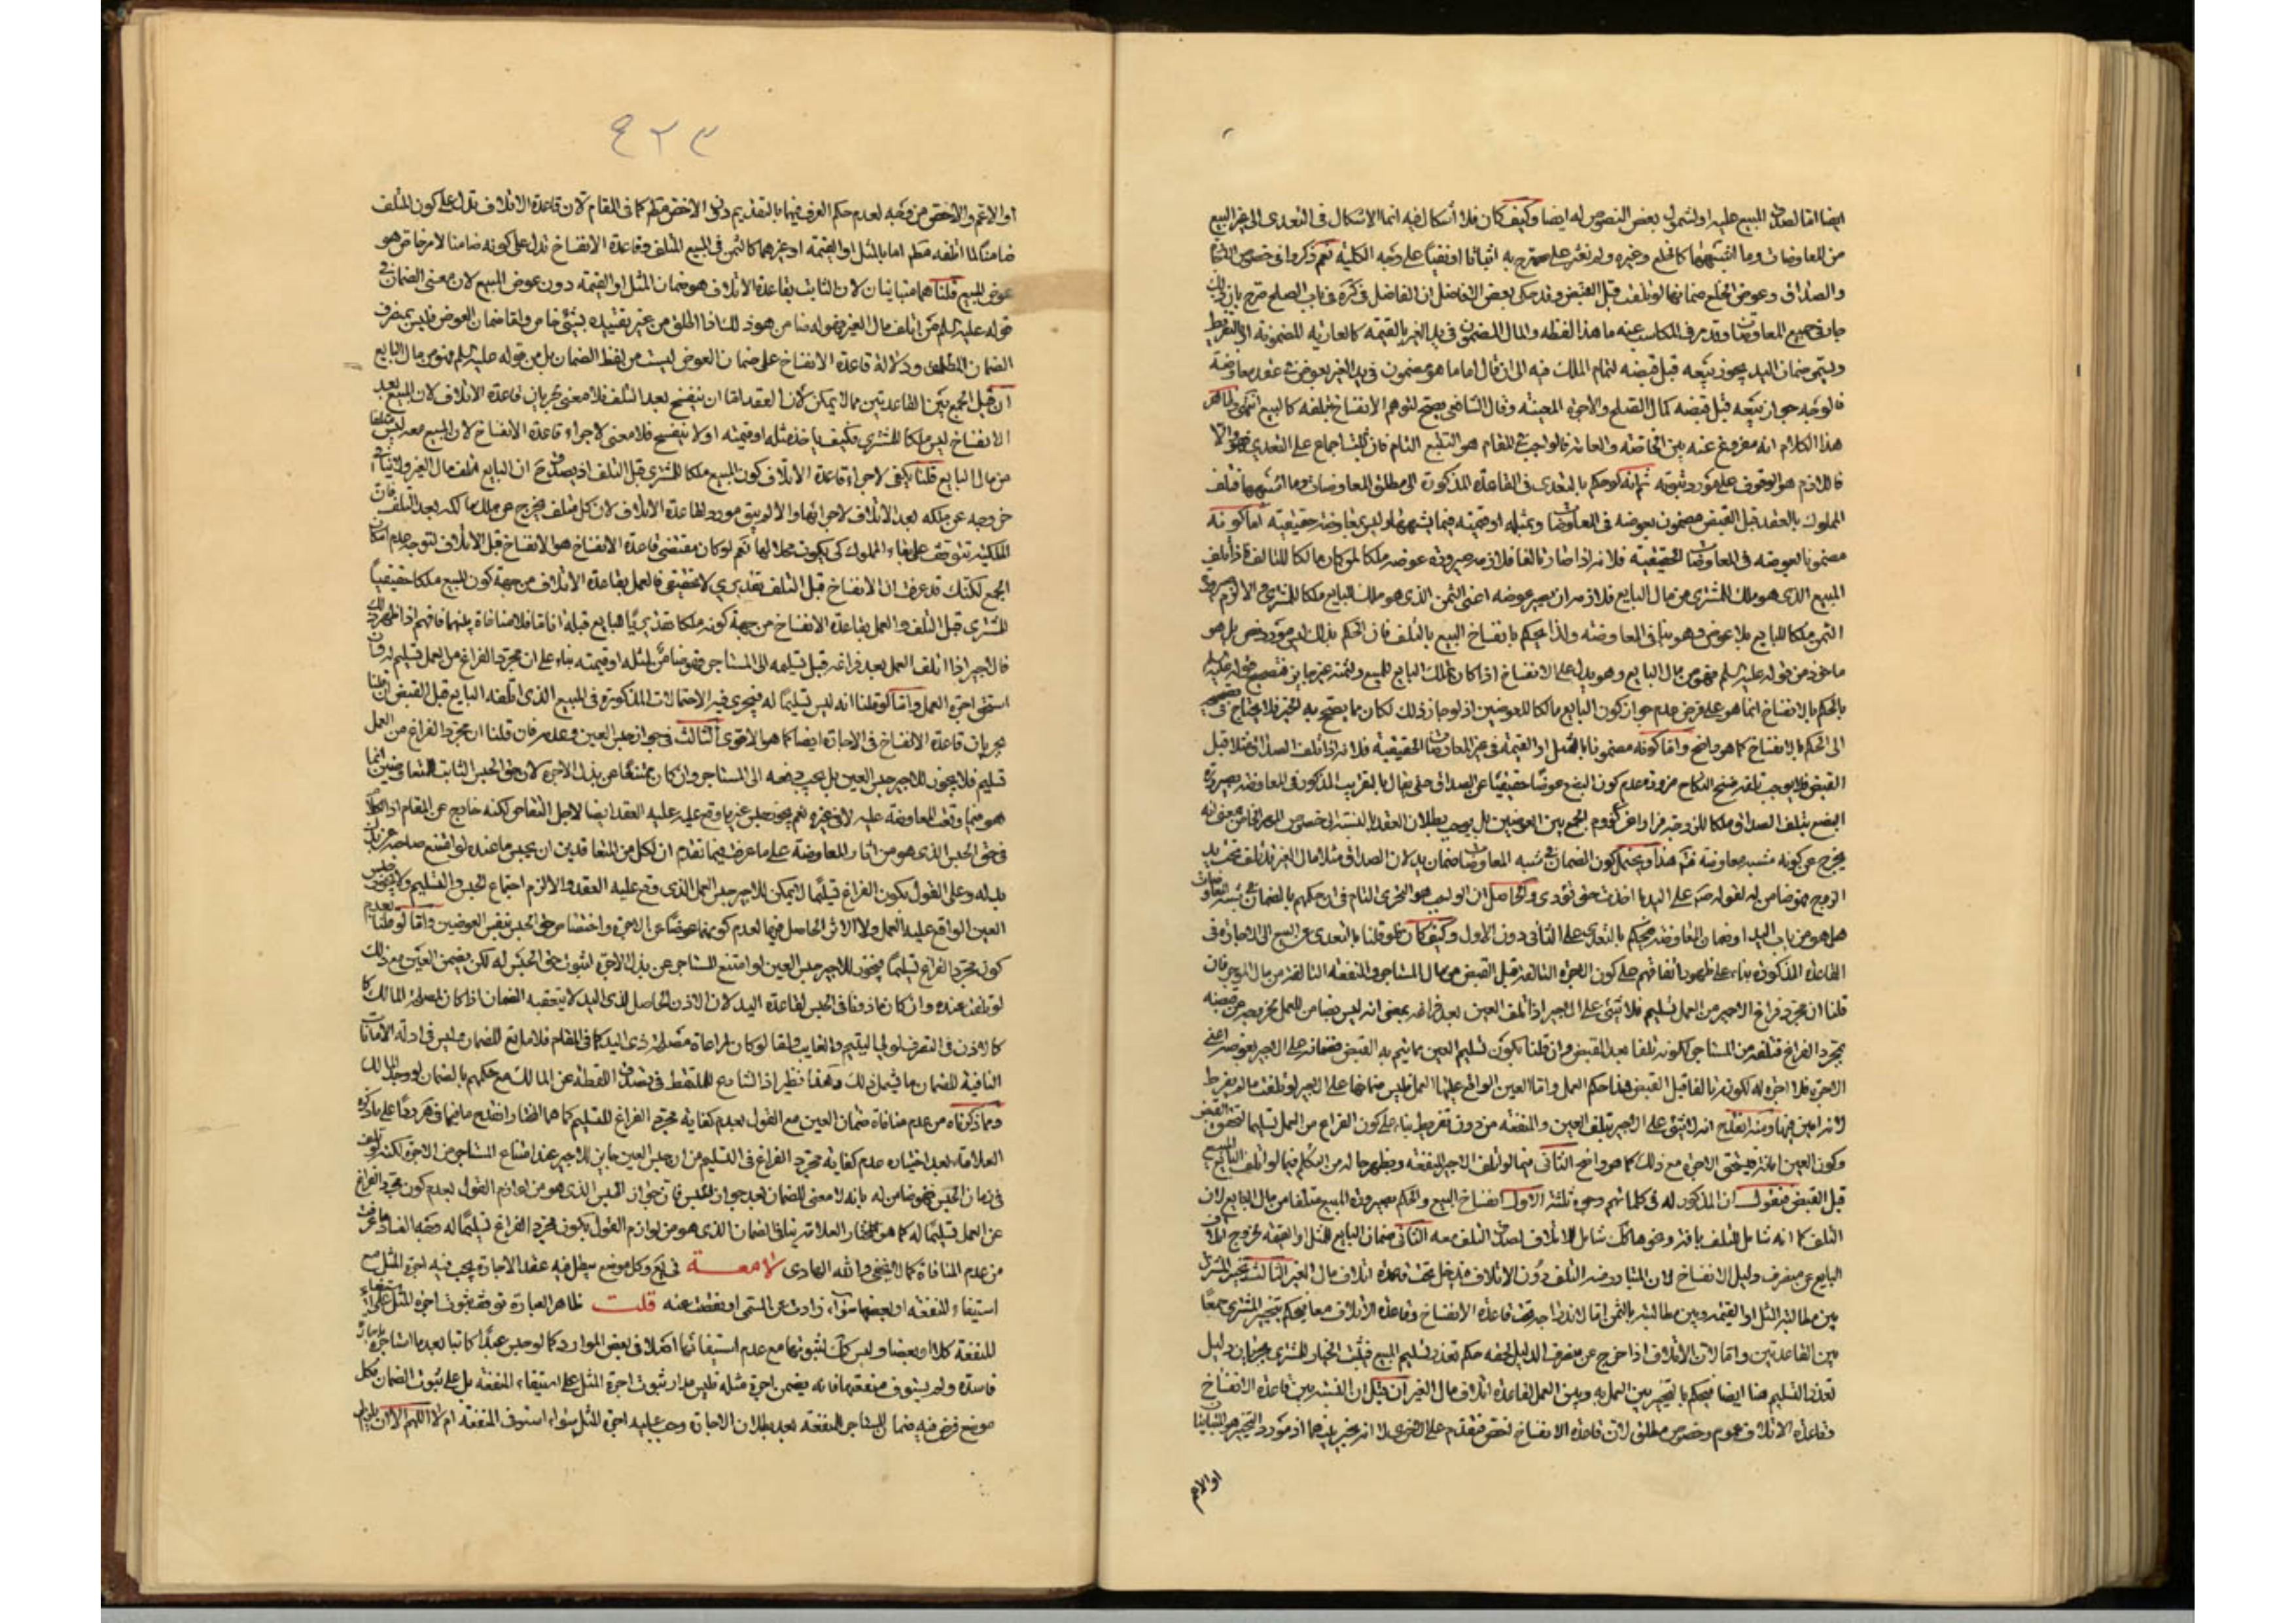 ايضا اما لصدق المبيع عليه او لشمول بعض النصوص له ايضا وكيف كان فلا اشكال فيه انما الاشكال في التعدى الى غير البيع
من المعاوضات وما اشبهها كالخلع وغيره ولم نعثر على مصرح به اثباتا او نفيا على وجه الكلية نعم ذكروا في خصوص
والصداق وعوض الخلع ضمانها لو تلف قبل القبض وقد حكى بعض الافاضل ان الفاضل في كره في باب الصلح صرح بان ذلك
جار في جميع المعاوضات وقد مر في المكاسب عنه ما هذا لفظه والمال المضمون في يد الغير بالقيمة كالعارية المضمونة او بالتفريط
ويسمى ضمان اليد يجوز بيعه قبل قبضه لتمام الملك فيه الى ان قال اما ما هو مضمون في يد الغير بعوض في عقد معاوضة
فالوجه جواز بيعه قبل قبضه كمال الصلح والاجرة المعينة وقال الشافعي لا يصح لتوهم الانفساخ بتلفه كالبيع انتهى وظاهر
هذا الكلام انه مفروغ عنه بين الخاصة والعامة فالواجب في المقام هو التتبع التام فان ثبت اجماع على التعدى فهو والا
فاللازم هو الوقوف على مورد ثبوته ثم انه لو حكم بالتعدى في القاعدة المذكورة الى مطلق المعاوضات وما اشبهها فتلف
المملوك بالعقد قبل القبض مضمون بعوضه في المعاوضات وبمثله او قيمته فيما يشبهها وليس بمعاوضة حقيقية اما كونه
مضمونا بعوضه في المعاوضات الحقيقية فلانه اذا صار تالفا فلازمه صيرورة عوضه ملكا لمن كان مالكا للتالف فاذا تلف
المبيع الذى هو ملك للمشترى من مال البايع فلازمه ان يصير عوضه اعنى الثمن الذى هو ملك البايع ملكا للمشترى والا لزم
الثمن ملكا للبايع بلا عوض وهو ينافى المعاوضة ولذا يحكم بانفساخ البيع بالتلف فان الحكم بذلك ليس مورد نص بل هو
ماخوذ من قوله عليه السلم فهو من مال البايع وهو يدل على الانفساخ اذا كان تملك البايع للمبيع ولثمنه غير جايز
بالحكم بالانفساخ انما هو على فرض عدم جواز كون البايع مالكا للعوضين اذ لو جاز ذلك لكان مما يصح به الخبر فلا يحتاج في
الى الحكم بالانفساخ كما هو واضح واما كونه مضمونا بالمثل او القيمة في غير المعاوضات الحقيقية فلانه اذا تلف الصداق مثلا قبل
القبض فلا يوجب تلفه فسخ النكاح ضرورة عدم كون البضع عوضا حقيقيا عن الصداق حتى يقال بالتقريب المذكور في المعاوضة بصيرورة
البضع بتلف الصداق ملكا للزوجة فرارا عن لزوم الجمع بين العوضين بل يوجب بطلان العقد بالنسبة الى خصوص المهر
يخرج عن كونه شبه معاوضة فتم هذا ويحتمل كون الضمان في شبه المعاوضات ضمان يد لان الصداق مثلا مال الغير قد تلف تحت يد
الزوج فهو ضامن له لقوله ص على اليد ما اخذت حتى تؤدى والحاصل ان الواجب هو التحرى التام في ان حكمهم بالضمان في شبه المعاوضات
هل هو من باب اليد او ضمان المعاوضة فيحكم بالتعدى على الثانى دون الاول وكيف كان فلو قلنا بالتعدى من البيع الى الاجارة في
القاعدة المذكورة بناء على ظهور اتفاقهم على كون الاجرة التالفة قبل القبض من مال المستاجر والمنفعة التالفة من مال الموجر فان
قلنا ان مجرد فراغ الاجير من العمل تسليم فلا شيء على الاجير اذا تلف العين بعد فراغه بمعنى انه ليس بضامن للعمل
بمجرد الفراغ فتلفه من المستاجر لكونه تلفا بعد القبض وان قلنا بكون تسليم العين مما يتم به القبض فضمانه على الاجير بعوضه اعنى
الاجرة فلا اجرة له لكونه تالفا قبل القبض هذا حكم العمل واما العين الواقع عليها العمل فليس ضمانها على الاجير لو تلف ما لم يفرط
لانه امين فيها ومنه انقدح انه لا شيء على الاجير بتلف العين والمنفعة من دون تفريط بناء على كون الفراغ من العمل تسليما لتحقق القبض
وكون العين امانة فيستحق الاجرة مع ذلك كما هو واضح الثانى فيما لو اتلف الاجير المنفعة ويظهر حاله من التكلم فيما لو اتلف البايع المبيع
قبل القبض فنقول ان المذكور له في كلماتهم وجوه ثلثة الاول انفساخ البيع والحكم بصيرورة المبيع متلفا من مال البايع لان
التلف كما انه شامل للتلف بافة ونحوها كك شامل للاتلاف لصدق التلف معه الثانى ضمان البايع للمثل او القيمة لخروج اتلاف
البايع عن منصرف دليل الانفساخ لان المتبادر منه التلف دون الاتلاف فيدخل تحت قاعدة اتلاف مال الغير الثالث تخير المشترى
بين مطالبة المثل او القيمة وبين مطالبته بالثمن اما لاندراجه تحت قاعدة الانفساخ وقاعدة الاتلاف معا فيحكم بتخيير المشترى جمعا
بين القاعدتين واما لان الاتلاف اذا خرج عن منصرف الدليل لحقه حكم تعذر تسليم المبيع فيثبت الخيار للمشترى بجريان دليل
تعذر التسليم هنا ايضا فيحكم بالتخيير بين العمل به وبين العمل لقاعدة اتلاف مال الغير ان قيل ان النسبة بين قاعدة الانفساخ
وقاعدة الاتلاف عموم وخصوص مطلق لان قاعدة الانفساخ اخص فتقدم على الاخرى لا انه يخير بينهما اذ مورد التخيير هو المتباينان
او الاعم
٤٢٣
او الاعم والاخص من وجه لعدم حكم العرف فيهما بالتقديم دون الاخص مطلقا كما في المقام لان قاعدة الاتلاف تدل على كون المتلف
ضامنا لما اتلفه مطلقا اما بالمثل او القيمة او غيرهما كالثمن في المبيع المتلف وقاعدة الانفساخ تدل على كونه ضامنا لامر خاص هو
عوض المبيع قلنا هما متباينان لان الثابت بقاعدة الاتلاف هو ضمان المثل او القيمة دون عوض المبيع لان معنى الضمان في
قوله عليه السلم من اتلف مال الغير فهو له ضامن هو ذلك اذا اطلق من غير تقييده بشيء خاص واما ضمان العوض فليس بمنصرف
الضمان المطلق ودلالة قاعدة الانفساخ على ضمان العوض ليست من لفظ الضمان بل من قوله عليه السلم فهو من مال البايع
ان قيل الجمع بين القاعدتين مما لا يمكن لان العقد اما ان ينفسخ بعد التلف فلا معنى لجريان قاعدة الاتلاف لان المبيع بعد
الانفساخ ليس ملكا للمشترى فكيف ياخذ مثله او قيمته او لا ينفسخ فلا معنى لاجراء قاعدة الانفساخ لان المبيع معه ليس متلفا
من مال البايع قلنا يكفى لاجراء قاعدة الاتلاف كون المبيع ملكا للمشترى قبل التلف اذ يصدق ح ان البايع اتلف مال الغير ولا ينافى
خروجه عن ملكه بعد الاتلاف لاجرائها والا لم يبق مورد لقاعدة الاتلاف لان كل متلف يخرج عن ملك مالكه بعد التلف فان
الملكية تتوقف على بقاء المملوك كى يكون محلا لها نعم لو كان مقتضى قاعدة الانفساخ هو الانفساخ قبل الاتلاف لتوجه عدم امكان
الجمع لكنك قد عرفت ان الانفساخ قبل التلف تقديرى لا حقيقى فالعمل بقاعدة الاتلاف من جهة كون المبيع ملكا حقيقيا
للمشترى قبل التلف والعمل بقاعدة الانفساخ من جهة كونه ملكا تقديريا للبايع قبله انا ما فلا منافاة بينهما فافهم اذا ظهر ذلك
فالاجير اذا اتلف العمل بعد فراغه قبل تسليمه الى المستاجر فهو ضامن لمثله او قيمته بناء على ان مجرد الفراغ من العمل تسليم له وان
استحق اجرة العمل واما لو قلنا انه ليس تسليما له فيجرى فيه الاحتمالات المذكورة في المبيع الذى اتلفه البايع قبل القبض ان قلنا
بجريان قاعدة الانفساخ في الاجارة ايضا كما هو الاقوى الثالث في جواز حبس العين وعدمه فان قلنا ان مجرد الفراغ من العمل
تسليم فلا يجوز للاجير حبس العين بل يجب دفعه الى المستاجر وان كان ممتنعا من بذل الاجرة لان حق الحبس الثابت للمتعاوضين انما
هو فيما وقعت المعاوضة عليه لا في غيره نعم يجوز حبس غير ما وقع عليه العقد ايضا لاجل التقاص لكنه خارج عن المقام اذ الكلام
في حق الحبس الذى هو من اثار المعاوضة على ما عرفت فيما تقدم ان لكل من المتعاقدين ان يحبس ما عنده لو امتنع صاحبه عن بذل
بدله وعلى القول بكون الفراغ تسليما لا يمكن للاجير حبس العمل الذى وقع عليه العقد والا لزم اجتماع الحبس والتسليم ولا يجوز حبس
العين الواقع عليه العمل ولا الاثر الحاصل فيها لعدم كونهما عوضا عن الاجرة واختصاص حق الحبس بنفس العوضين واما لو قلنا بعدم
كون مجرد الفراغ تسليما فيجوز للاجير حبس العين لو امتنع المستاجر عن بذل الاجرة لثبوت حق الحبس له لكن يضمن العين مع ذلك
لو تلف عنده وان كان ماذونا في الحبس لقاعدة اليد لان الاذن الحاصل لذى اليد لا يتعقبه الضمان اذا كان لمصلحة المالك
كالاذن في التصرف لولى اليتيم والغايب واما لو كان لمراعاة مصلحة ذى اليد كما في المقام فلا مانع للضمان وليس في ادلة الامانات
النافية للضمان ما يشمل ذلك وهذا نظير اذن الشارع للملتقط في تصدق اللقطة عن المالك مع حكمهم بالضمان لو وجد المالك
ومما ذكرناه من عدم منافاة ضمان العين مع القول بعدم كفاية مجرد الفراغ للتسليم كما هو المختار انقدح ما في
العلامة بعد اختياره عدم كفاية مجرد الفراغ في التسليم من ان حبس العين جايز للاجير عند امتناع المستاجر من الاجرة لكنه لو تلف
في زمان الحبس فهو ضامن له بانه لا معنى للضمان بعد جواز الحبس فان جواز الحبس الذى هو من لوازم القول بعدم كون مجرد الفراغ
عن العمل تسليما له كما هو مختار العلامة ينافى الضمان الذى هو من لوازم القول بكون مجرد الفراغ تسليما له وجه الفساد ما عرفت
من عدم المنافاة كما لا يخفى والله الهادى لامعة في يع وكل موضع يبطل فيه عقد الاجارة يجب فيه اجرة المثل مع
استيفاء المنفعة او بعضها سواء زادت عن المسمى او نقصت عنه قلت ظاهر العبارة توقف ثبوت اجرة المثل على استيفاء
المنفعة كلا او بعضا وليس كك لثبوتها مع عدم استيفائها اصلا في بعض الموارد كما لو حبس عبدا كاتبا بعد ما استاجره باجارة
فاسدة ولم يستوف منفعته فانه يضمن اجرة مثله فليس مدار ثبوت اجرة المثل على استيفاء المنفعة بل على ثبوت الضمان فكل
موضع فرض فيه ضمان المستاجر للمنفعة بعد بطلان الاجارة وجب عليه اجرة المثل سواء استوفى المنفعة ام لا اللهم الا ان